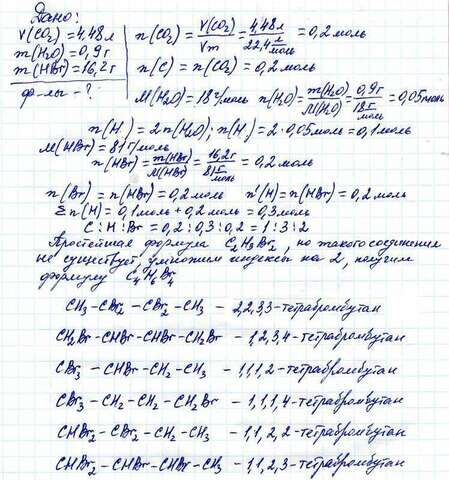 Дано:
V(CO₂)=4,48л
m(H₂O)=0,9г
m(HBr)=16,2г
ф-лы - ?
n(CO₂)=V(CO₂)/Vm=4,48л/22,4л/моль=0,2моль
n(C)=n(CO₂)=0,2моль
M(H₂O)=18г/моль n(H₂O)=m(H₂O)/M(H₂O)=0,9г/18г/моль=0,05моль
n(H)=2n(H₂O); n(H)=2·0,05моль=0,1моль
M(HBr)=81г/моль
n(HBr)=m(HBr)/M(HBr)=16,2г/81г/моль=0,2моль
n(Br)=n(HBr)=0,2моль n'(H)=n(HBr)=0,2моль
Σn(H)=0,1моль+0,2моль=0,3моль
C:H:Br=0,2:0,3:0,2=1:3:2
Простейшая формула C₂H₃Br₂, но такого соединения
не существует, умножим индексы на 2, получим
формулу C₄H₆Br₄
CH₃-CBr₂-CBr₂-CH₃ - 2,2,3,3-тетрабромбутан
CH₂Br-CHBr-CHBr-CH₂Br - 1,2,3,4-тетрабромбутан
CBr₃-CHBr-CH₂-CH₃ - 1,1,1,2-тетрабромбутан
CBr₃-CH₂-CH₂-CH₂Br - 1,1,1,4-тетрабромбутан
CHBr₂-CBr₂-CH₂-CH₃ - 1,1,2,2-тетрабромбутан
CHBr₂-CHBr-CHBr-CH₃ - 1,1,2,3-тетрабромбутан